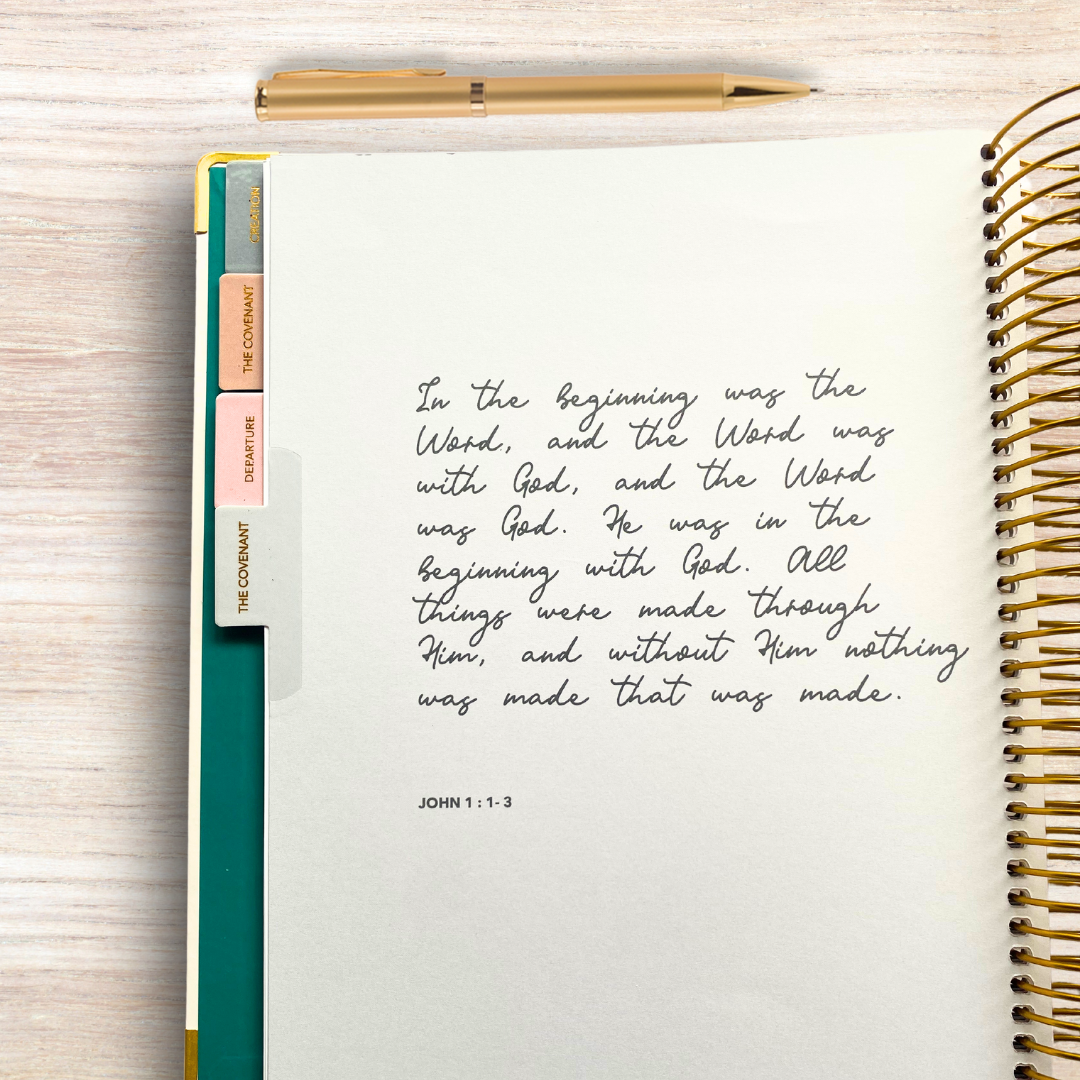 CREATION
THE COVENANT
DEPARTURE
THE COVENANT
In the beginning was the
Word, and the Word was
with God, and the Word
was God. He was in the
beginning with God. All
things were made through
Him, and without Him nothing
was made that was made.
JOHN 1 : 1- 3